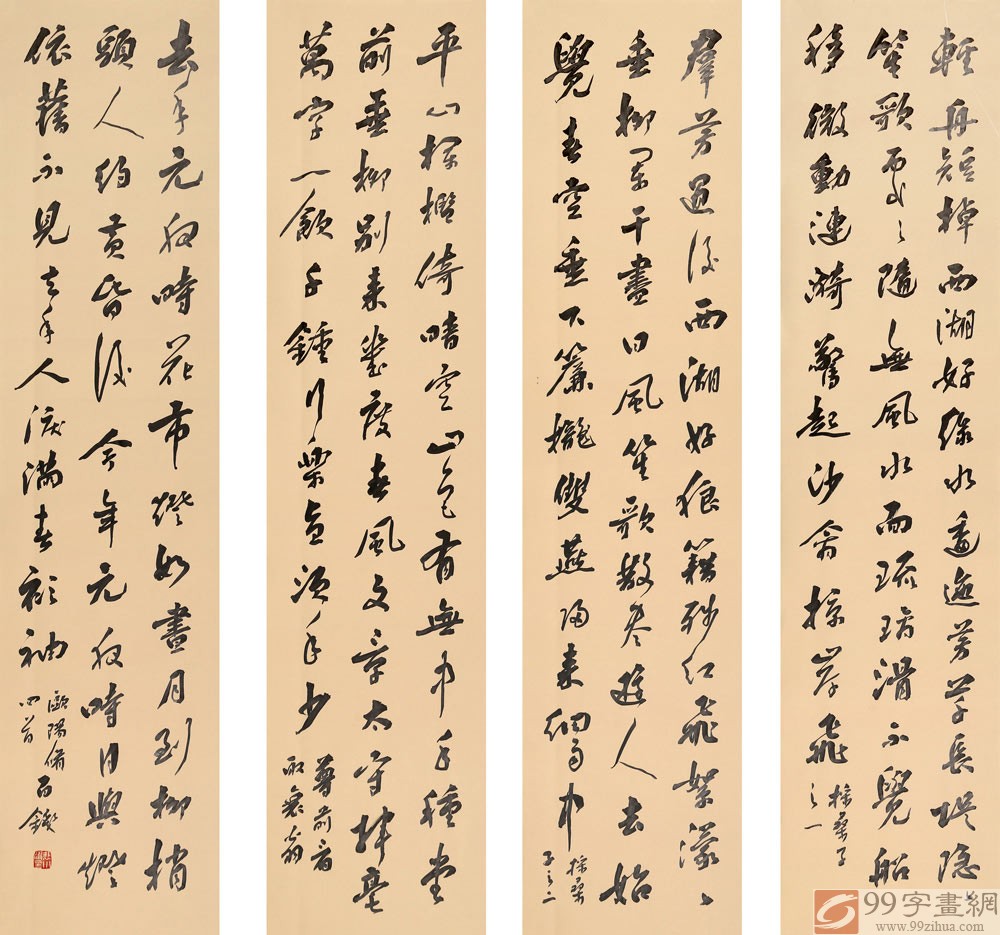 輕舟短棹西湖好綠水逶迤芳草長堤隱〻
笙歌處〻隨無風水面琉璃滑不覺船
移微動漣漪驚起沙禽掠岸飛
採桑子
之一
羣芳過後西湖好狼籍殘紅飛絮濛〻
垂柳闌干盡日風笙歌散盡遊人去始
覺春空垂下簾櫳雙燕歸來細雨中
採桑
子之二
平山欄檻倚晴空山色有無中手種堂
前垂柳別來幾度春風文章太守揮毫
萬字一飲千鍾行樂直須年少
尊前看
取衰翁
去年元夜時花市燈如晝月到柳梢
頭人約黃昏後今年元夜時月與燈
依舊不見去年人淚滿春衫袖
歐陽脩
四首
99字畫網
www.99zihua.com